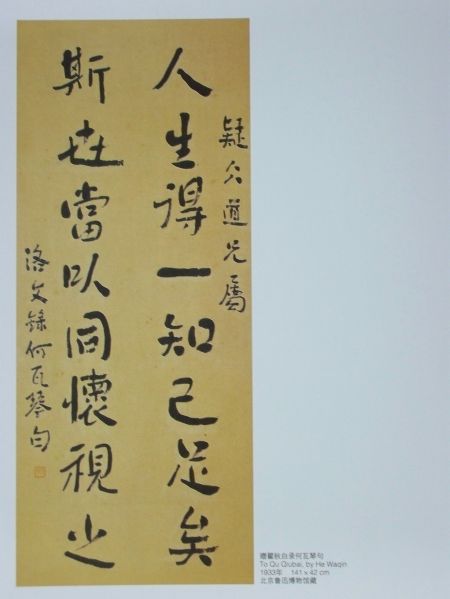 疑仌道兄屬
人生得一知己足矣
斯世當以同懷視之
洛文錄何瓦琴句
赠瞿秋白录何瓦琴句
To Qu Qiubai, by He Waqin
1933年 141 x 42 cm
北京鲁迅博物馆藏